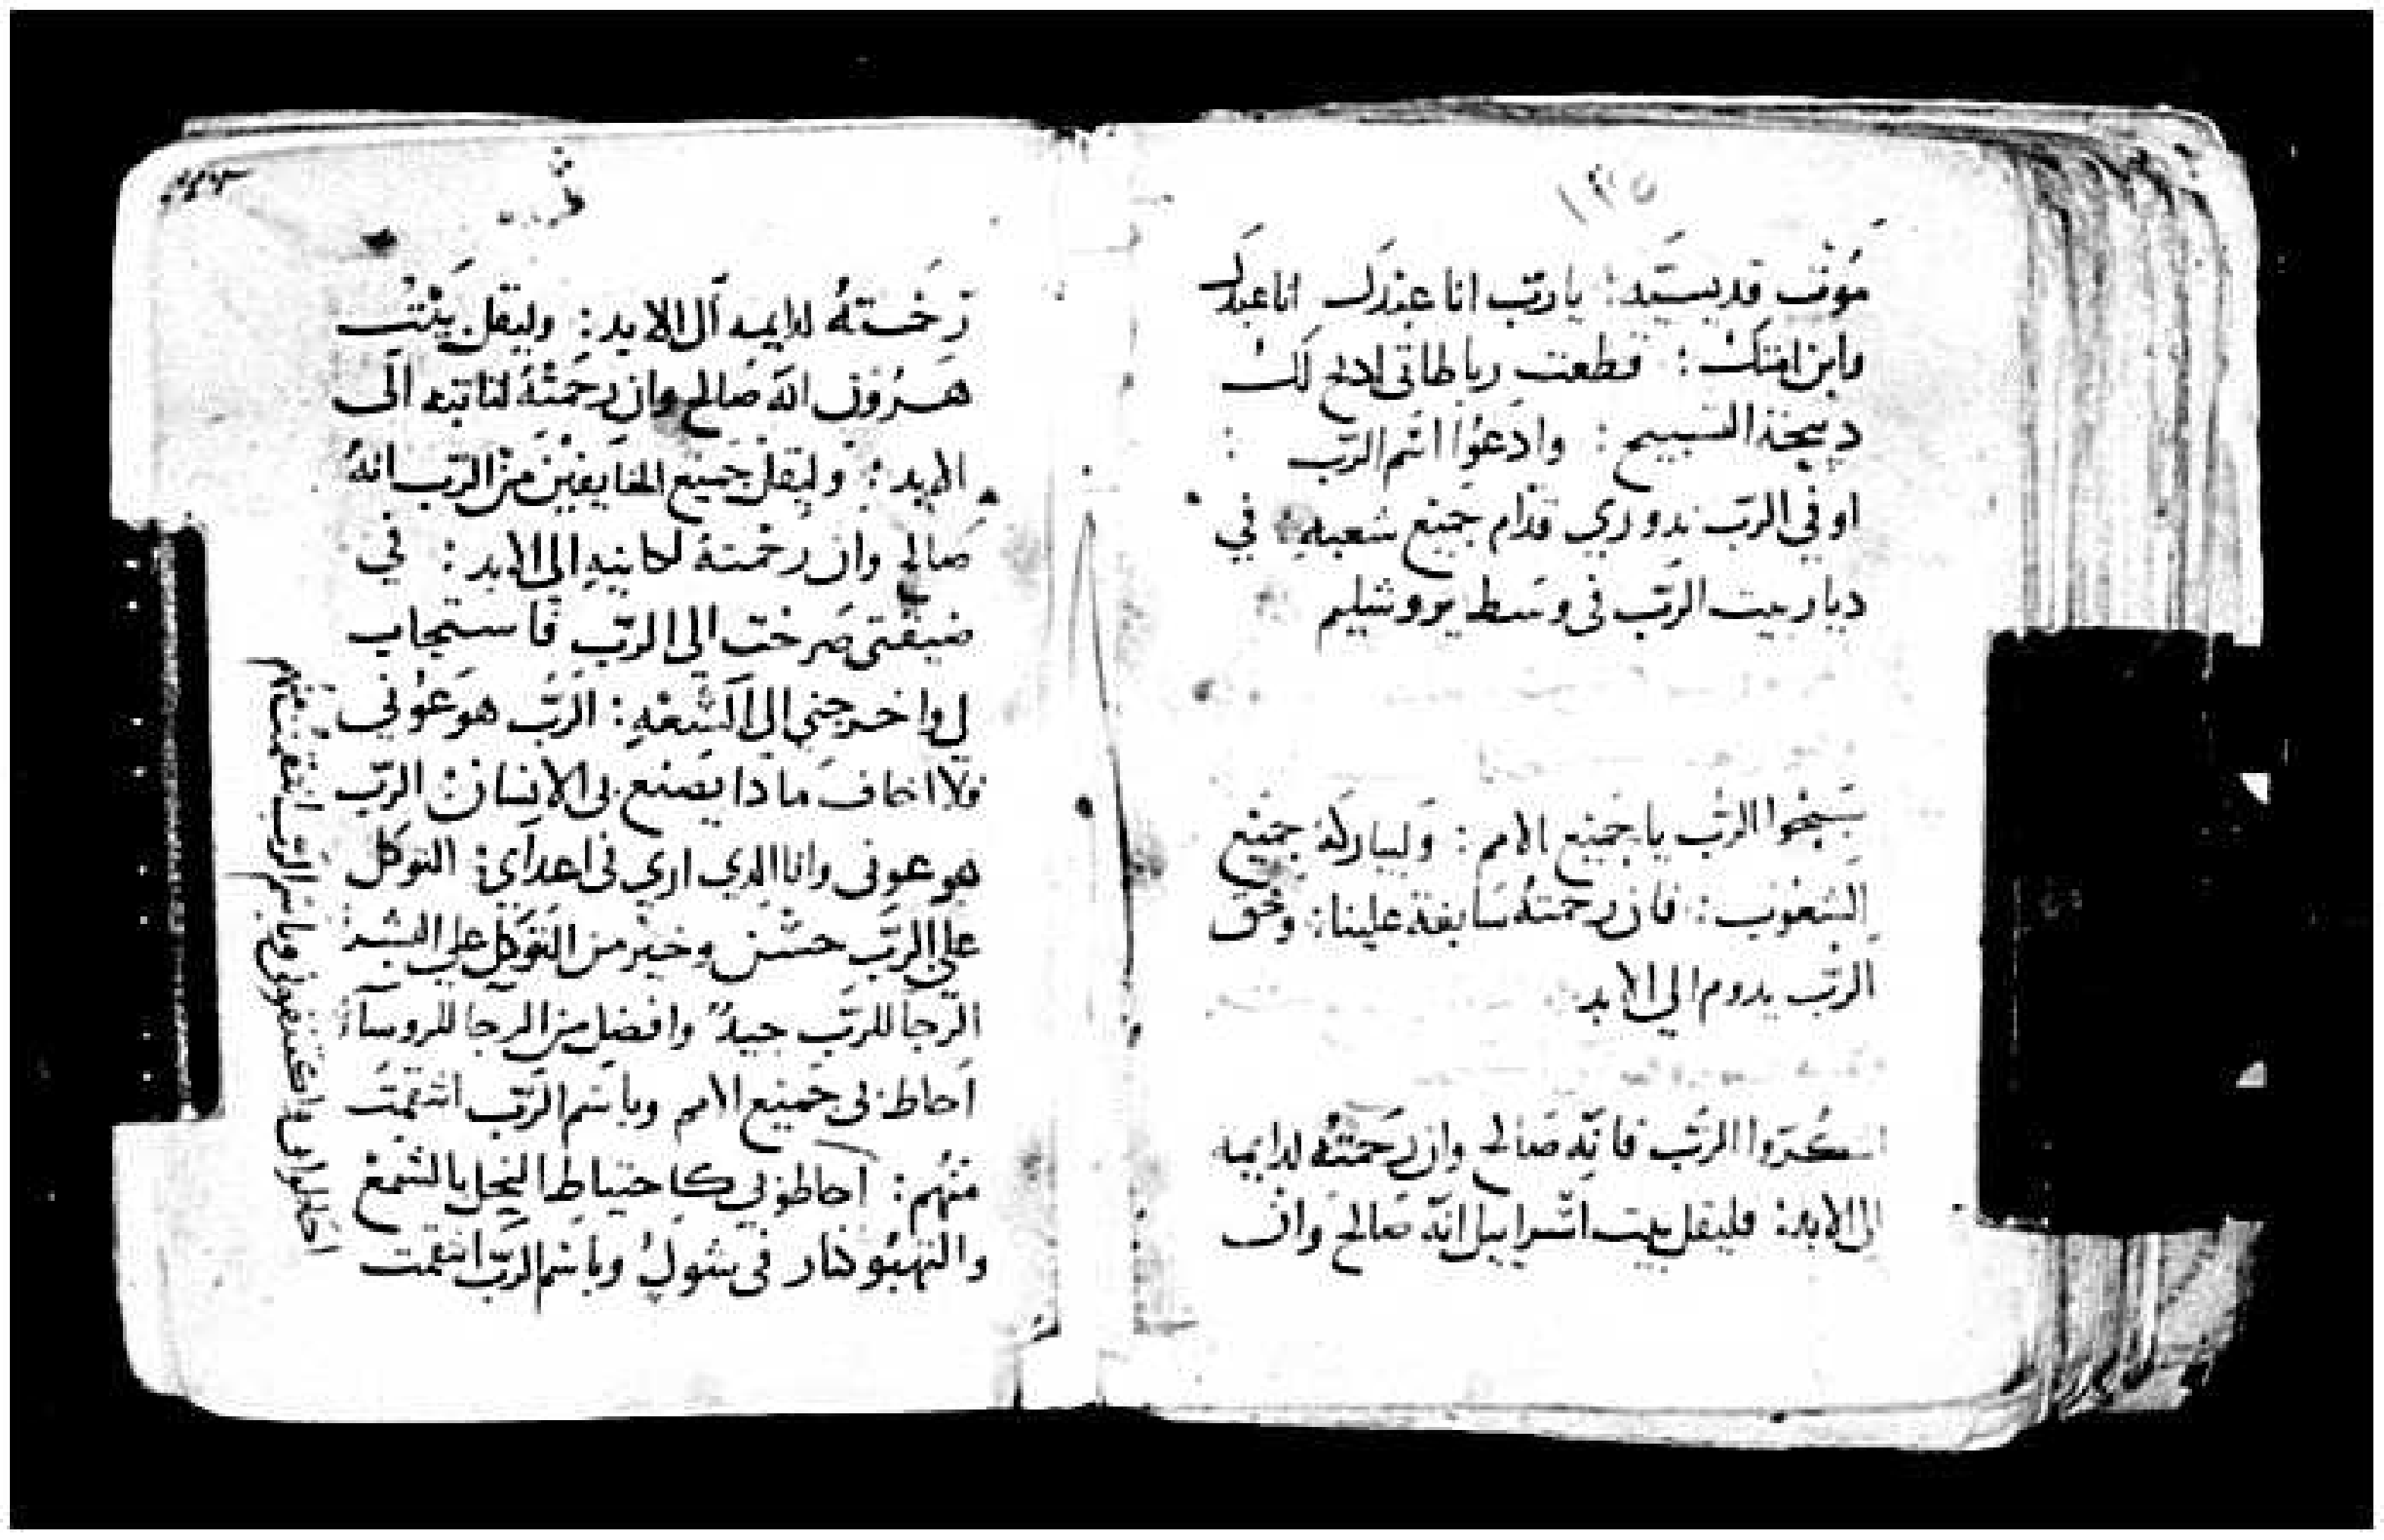 ١٣٥
مَوْت قديسيّه: يا ربّ انا عبْدك انا عبدك
وابن امتك: قطعت رباطاتي لادبح لك
دبيحة التسبيح: وادعُوا اسم الرّب:
اوفي الرّب ندوري قدّام جميع شعبه: في
ديار بيت الرّب في وسط يروشليم
سَبّحُوا الرّب يا جَميْع الامم: وليباركهُ جميْع
الشعُوب: فان رحمتهُ سَابغة علينا: وحَق
الرّب يدوم الي الابد
اشكُروا الرّب فانّه صَالح وان رَحمتهُ لدايمه
الى الابد: فليقل بيت اسْراييل انّه صَالح وان
رَحمتهُ لدايمه الى الابد: وليقل بيْت
هَرُوْن انهّ صَالح وان رحَمْتهُ لثابته الَى
الابد: وليقل جميْع الخايفيْن من الرّب انهُ
صَالح وان رحْمتهُ لكاينه الى الابد: في
ضيقتي صَرخت الى الرّب فاستجاب
لي واخرجني الي السّعَه: الرّب هو عَوْني
فلا اخاف مادا يصْنع بي الانسان: الرّب
هو عوني وانا الدي اري في اعدآي: التوكل
علي الرّب حسَن وخير من التوكل علي البشر
الرجا للرّب جيدٌ وافضل من الرجا للروسآ:
احاط بي جميْع الامم وباسْم الرّب انتقمتُ
منهُم: احاطوْ بي كاحتياط النحل بالشمع
والتهبُو كنار في شوك وباسْم الرّب انتقمت
احاطوا بي واكتنفوني وباسم الرّب انتقمت منهم